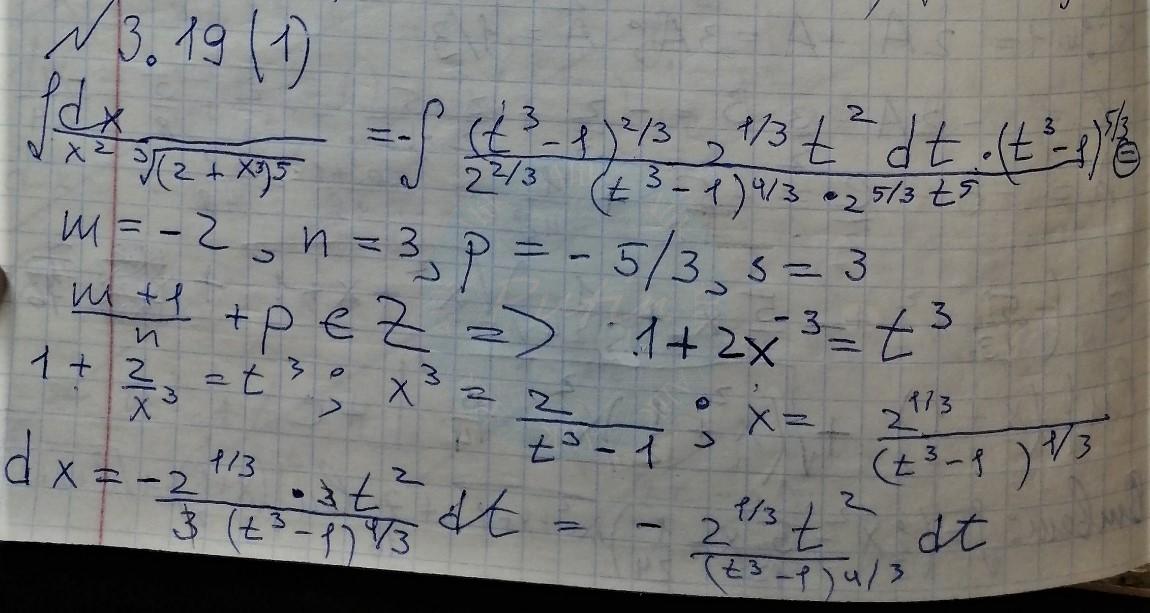 № 3.19 (1)
∫ dx / (x² ∛((2 + x³)⁵)) = -∫ ((t³ - 1)^{2/3} 2^{1/3} t² dt · (t³ - 1)^{5/3}) / (2^{2/3} (t³ - 1)^{4/3} · 2^{5/3} t⁵) ⊜
m = -2, n = 3, p = - 5/3, s = 3
(m + 1)/n + p ∈ Z => 1 + 2x^{-3} = t³
1 + 2/x³ = t³; x³ = 2/(t³ - 1); x = 2^{1/3}/(t³ - 1)^{1/3}
dx = (-2^{1/3} · 3t²)/(3 (t³ - 1)^{4/3}) dt = - (2^{1/3} t²)/((t³ - 1)^{4/3}) dt